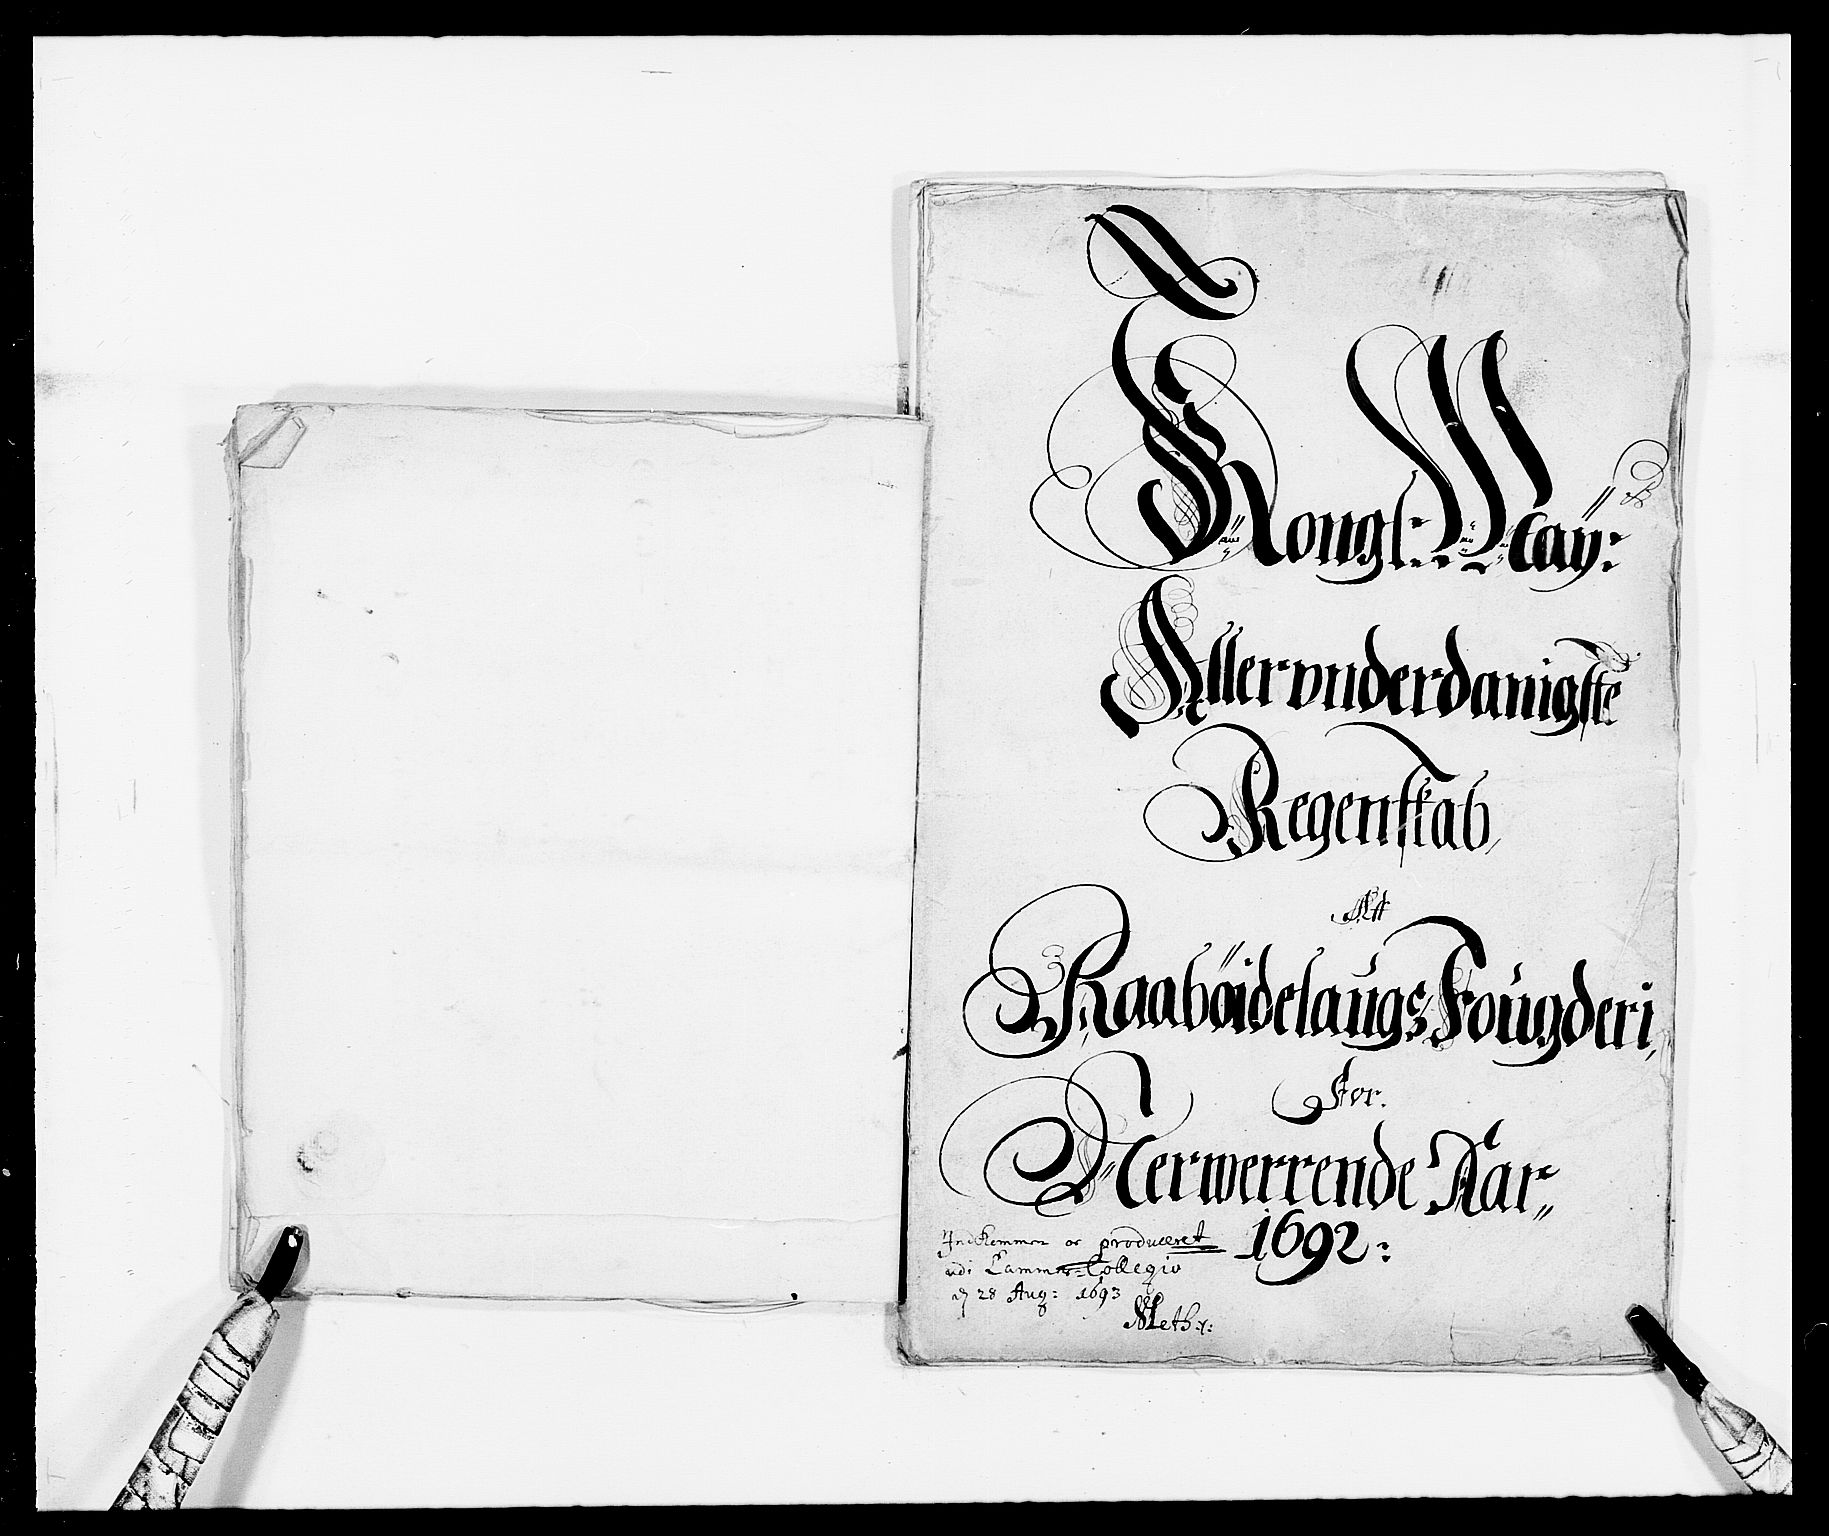 Kongl: May:
Allerunderdanigste
Regenskab,
Aff
Raabøidelaugs Fougderi,
For.
Nerwerrende Aar,,
1692:
Indkommen oc produceret
udi Cammer-Collegio
d 28 Aug: 1693